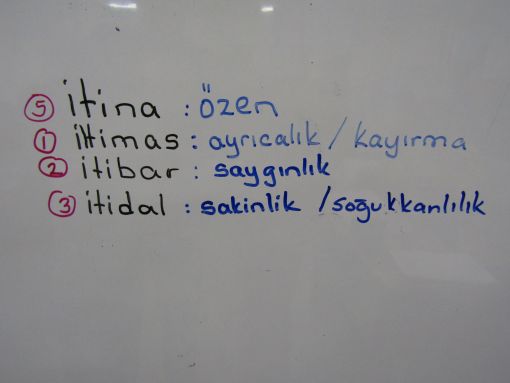 ⑤ itina : özen
① iltimas : ayrıcalık / kayırma
② itibar : saygınlık
③ itidal : sakinlik / soğukkanlılık